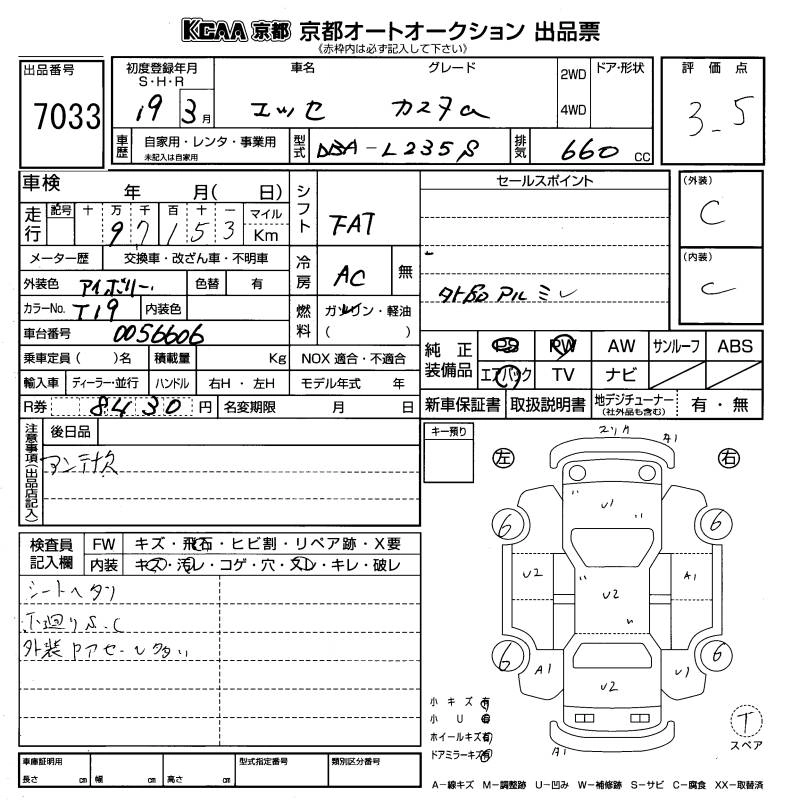 KCAA 京都 京都オートオークション 出品票
《赤枠内は必ず記入して下さい》
出品番号
7033
初度登録年月
S・H・R
19 3 月
車名
エッセ
グレード
カスタム
2WD
4WD
ドア・形状
評価点
3.5
車歴
自家用・レンタ・事業用
未記入は自家用
型式
DBA-L235S
排気
660 CC
車検 年 月( 日)
走行
記号 十 万 千 百 十 一 マイル
9 7 1 5 3 Km
メーター歴 交換車・改ざん車・不明車
外装色 アイボリー 色替 有
カラーNo. T19 内装色
車台番号 0056606
乗車定員( )名 積載量 Kg
輸入車 ディーラー・並行 ハンドル 右H・左H
R券 8430 円 名変期限 月 日
シフト
FAT
冷房
AC 無
燃料
ガソリン・軽油
( )
NOX 適合・不適合
モデル年式 年
セールスポイント
社外品アルミ
(外装)
C
(内装)
C
純正装備品
PS PW AW サンルーフ ABS
エアバック TV ナビ
新車保証書 取扱説明書 地デジチューナー
(社外品も含む)
有・無
注意事項(出品店記入)
後日品
アンテナ欠
キー預り
検査員記入欄
FW キズ・飛石・ヒビ割・リペア跡・X要
内装 キズ・汚レ・コゲ・穴・スレ・キレ・破レ
シートヘタリ
下廻りS.C
左
右
スリキ A1
U1
6 6
U2 A1
U2
6 6
A1 U1
U2
A1
小キズ 有
小U 有
ホイールキズ 有
ドアミラーキズ 有
T
スペア
車庫証明用
長さ cm 幅 cm 高さ cm
型式指定番号
類別区分番号
A−線キズ M−調整跡 U−凹み W−補修跡 S−サビ C−腐食 XX−取替済